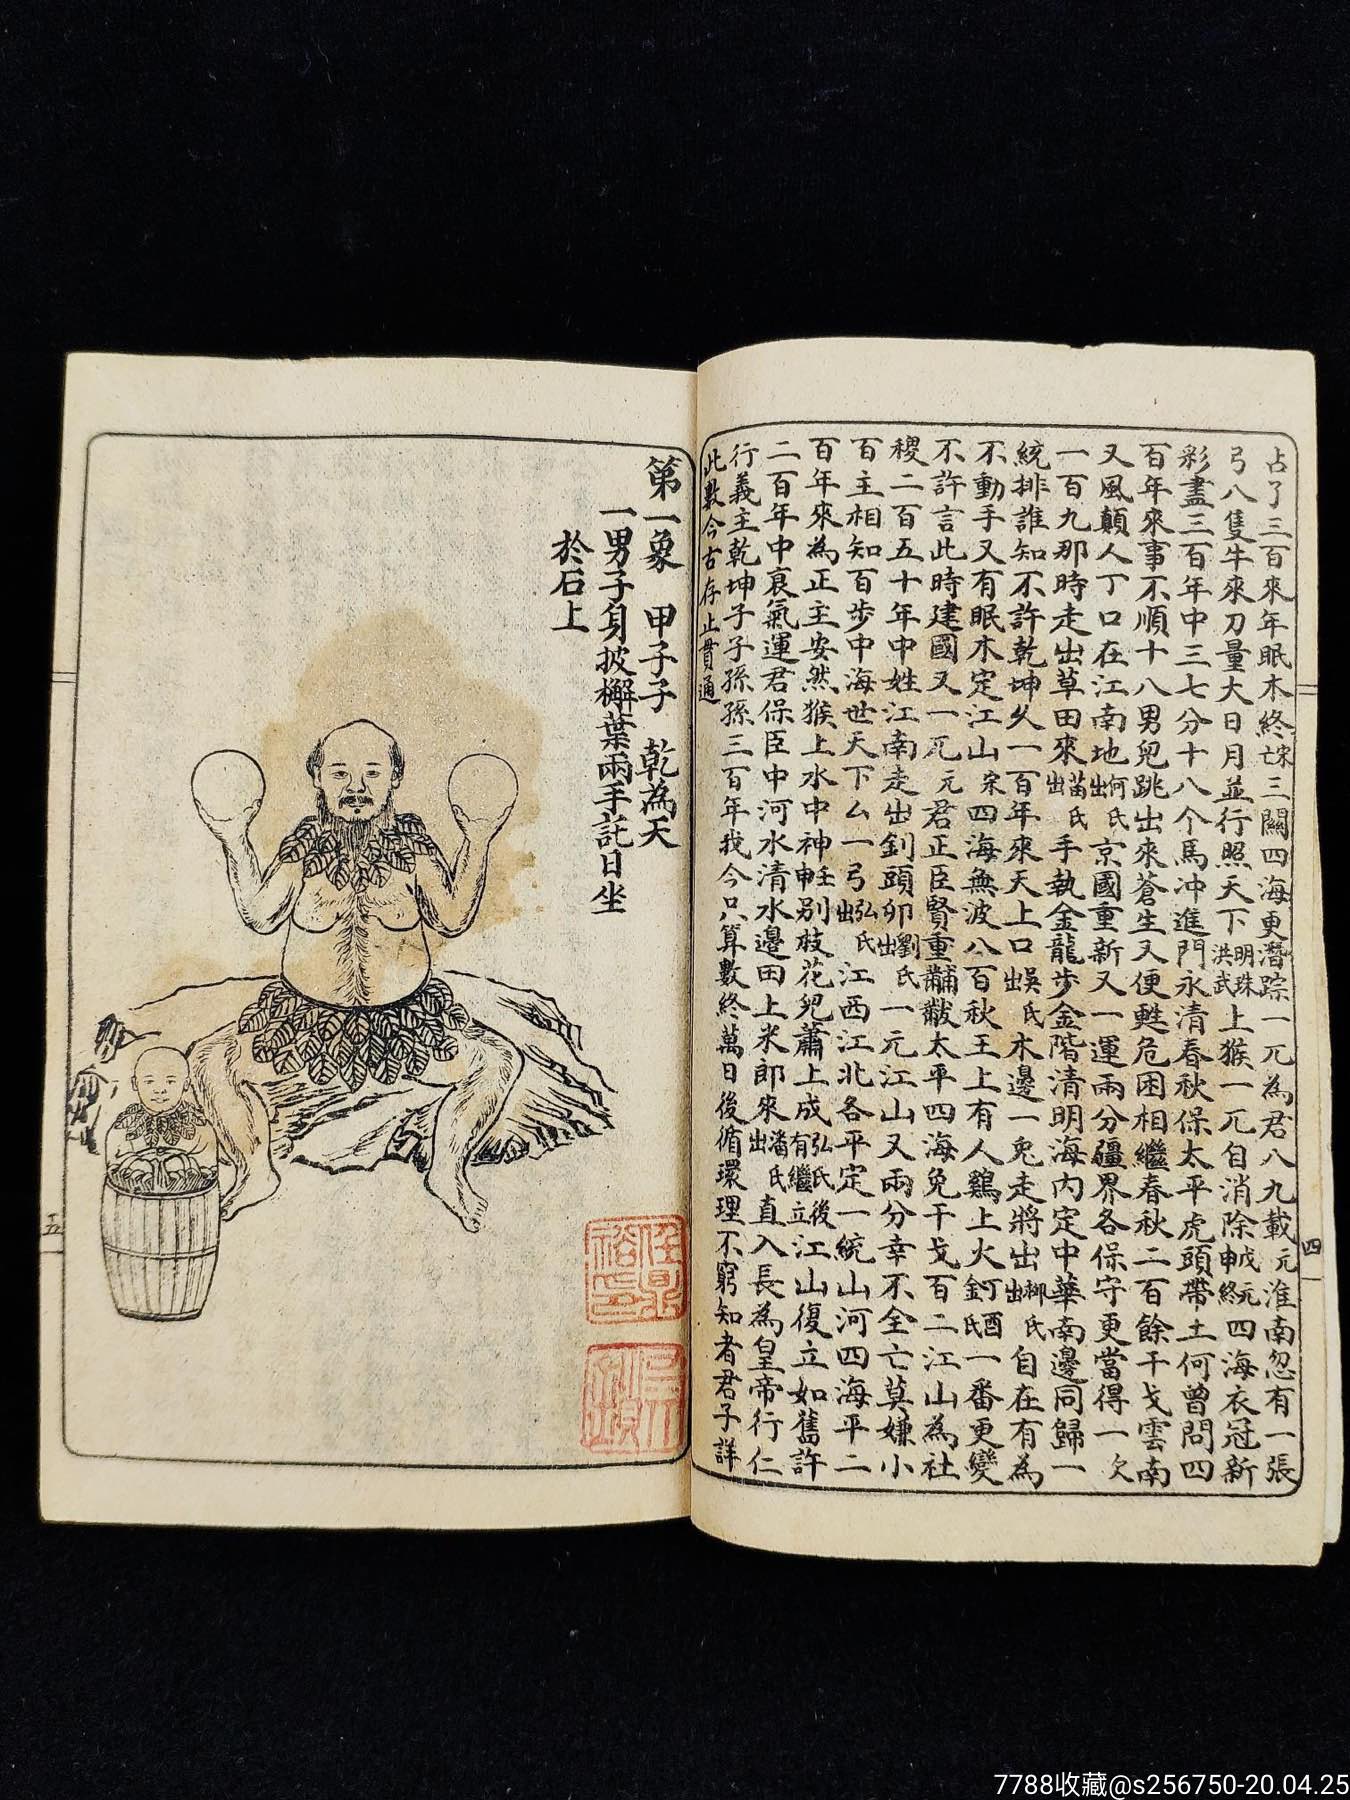 占了三百來年眠木終宋亡三關四海更潛踪一兀為君八九載元淮南忽有一張
弓八隻牛來刀量大日月並行照天下明珠洪武上猴一兀自消除戊申元終四海衣冠新
彩盡三百年中三七分十八个馬冲進門永清春秋保太平虎頭帶土何曾問四
百年來事不順十八男兒跳出來蒼生又便甦危困相繼春秋二百餘干戈雲南
又風顛人丁口在江南地何氏出京國重新又一運兩分疆界各保守更當得一欠
一百九那時走出草田來苗氏出手執金龍步金階清明海內定中華南邊同歸一
統排誰知不許乾坤久一百年來天上口吳氏出木邊一兔走將出柳氏出自在有為
不動手又有眠木定江山宋四海無波八百秋王上有人鷄上火金丁酉氏一番更變
不許言此時建國又一兀元君正臣賢重黼黻太平四海免干戈百二江山為社
稷二百五十年中姓江南走出釗頭卯劉氏出一元江山又兩分幸不全亡莫嫌小
百主相知百步中海世天下厶一弓弘氏出江西江北各平定一統山河四海平二
百年來為正主安然猴上水中神壬申別枝花兒蕭上成弘氏有繼後立江山復立如舊許
二百年中衰氣運君保臣中河水清水邊田上米郎來潘氏出直入長為皇帝行仁
行義主乾坤子子孫孫三百年我今只算數終萬日後循環理不窮知者君子詳
此數今古存止貫通
四
第一象 甲子子 乾為天
一男子身披檞葉兩手託日坐
於石上
五
7788收藏@s256750-20.04.25